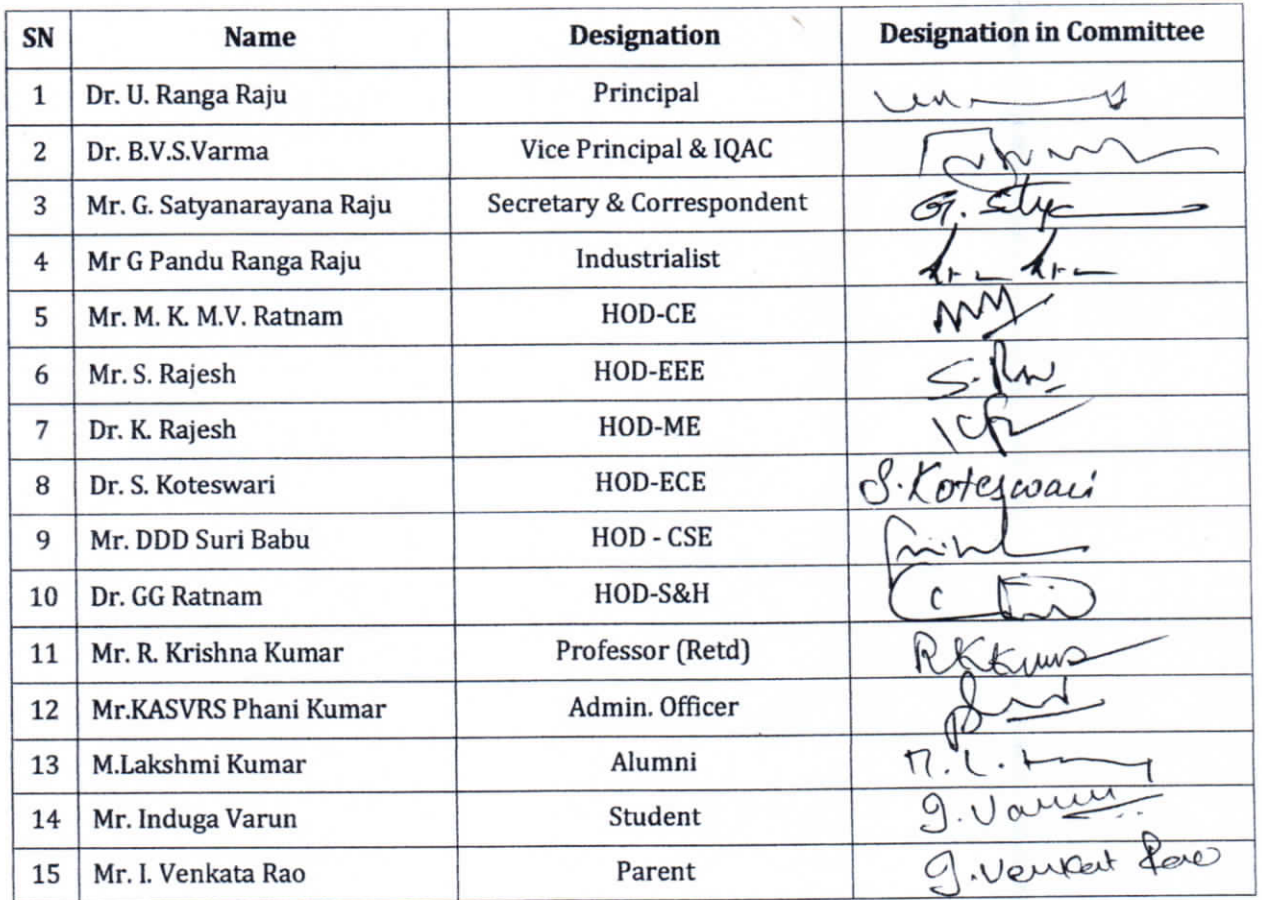 SN Name Designation Designation in Committee
1 Dr. U. Ranga Raju Principal
2 Dr. B.V.S.Varma Vice Principal & IQAC
3 Mr. G. Satyanarayana Raju Secretary & Correspondent G. Satya
4 Mr G Pandu Ranga Raju Industrialist
5 Mr. M. K. M.V. Ratnam HOD-CE
6 Mr. S. Rajesh HOD-EEE
7 Dr. K. Rajesh HOD-ME
8 Dr. S. Koteswari HOD-ECE S.Koteswari
9 Mr. DDD Suri Babu HOD - CSE
10 Dr. GG Ratnam HOD-S&H
11 Mr. R. Krishna Kumar Professor (Retd)
12 Mr.KASVRS Phani Kumar Admin. Officer
13 M.Lakshmi Kumar Alumni
14 Mr. Induga Varun Student I.Varun
15 Mr. I. Venkata Rao Parent I.Venkat Rao